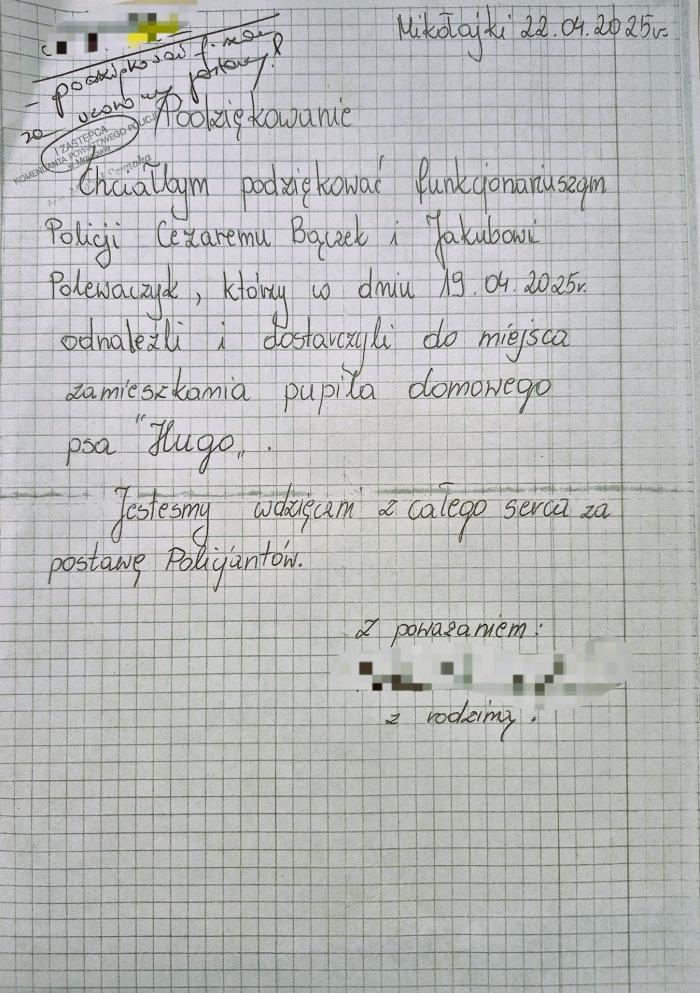 Mikołajki 22.04.2025r.
- podziękować
za wzorową postawę!
Podziękowanie
I ZASTĘPCA
KOMENDANTA POWIATOWEGO POLICJI
Chciałbym podziękować funkcjonariuszom
Policji Cezaremu Bączek i Jakubowi
Polewaczyk, którzy w dniu 19.04.2025r.
odnaleźli i dostarczyli do miejsca
zamieszkania pupila domowego
psa "Hugo„.
Jesteśmy wdzięczni z całego serca za
postawę Policjantów.
Z poważaniem:
z rodziną.